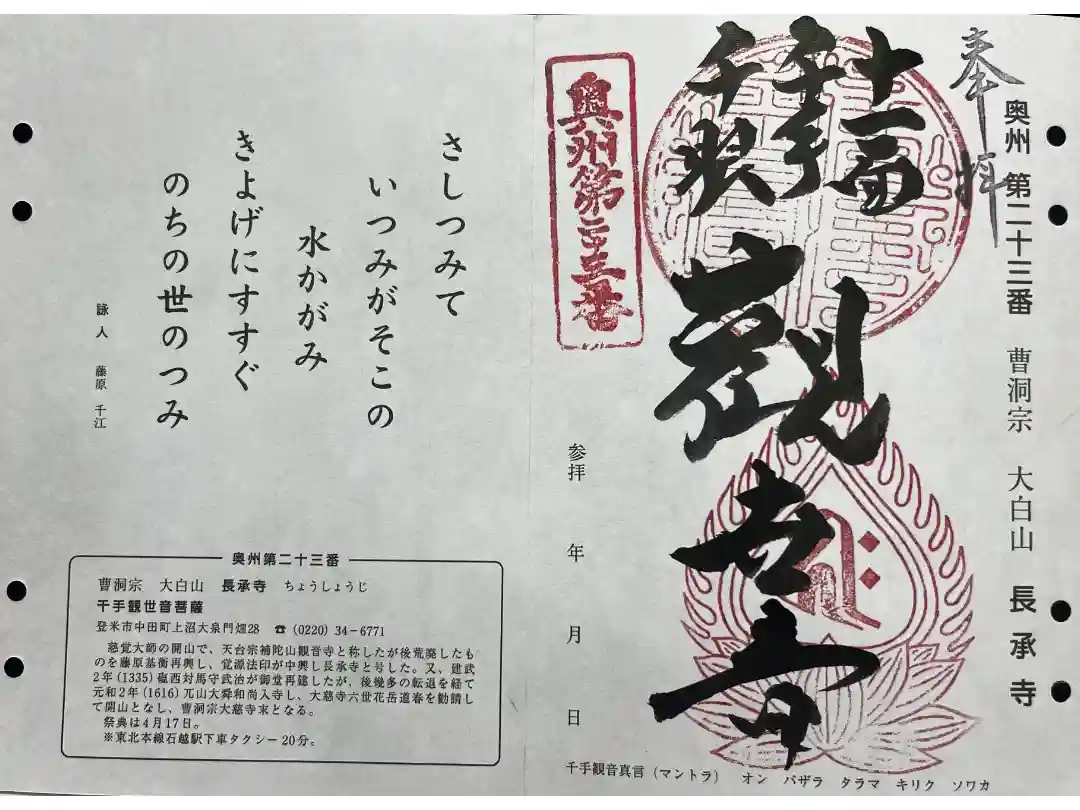 奉拝
奥州 第二十三番 曹洞宗 大白山 長承寺
十一面
千手
千眼
觀世音
奥州第二十三番
参拝 年 月 日
千手観音真言（マントラ） オン バザラ タラマ キリク ソワカ
さしつみて
いつみがそこの
水かがみ
きよげにすすぐ
のちの世のつみ
詠人 藤原 千江
奥州第二十三番
曹洞宗 大白山 長承寺 ちょうしょうじ
千手観世音菩薩
登米市中田町上沼大泉門畑28 ☎(0220)34-6771
慈覚大師の開山で、天台宗補陀山観音寺と称したが後荒廃したも
のを藤原基衡再興し、覚源法印が中興し長承寺と号した。又、建武
2年(1335)西対馬守武治が御堂再建したが、後幾多の転退を経て
元和2年(1616)山大舜和尚入寺し、大慈寺六世花岳道春を勧請し
て開山となし、曹洞宗大慈寺末となる。
祭典は4月17日。
※東北本線石越駅下車タクシー20分。